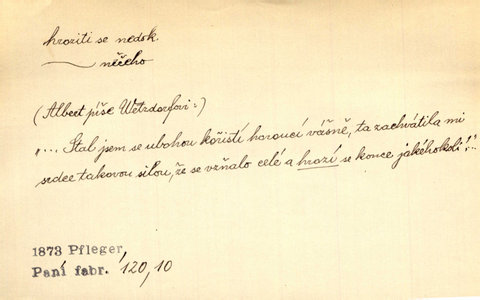 hroziti se nedok.
něčeho
(Albert píše Wetzdorfovi:)
„... Stal jsem se ubohou kořistí horoucí vášně, ta zachvátila mi
srdce takovou silou, že se vzňalo celé a hrozí se konce jakéhokoli!..."
1873 Pfleger,
Paní fabr. 120,10